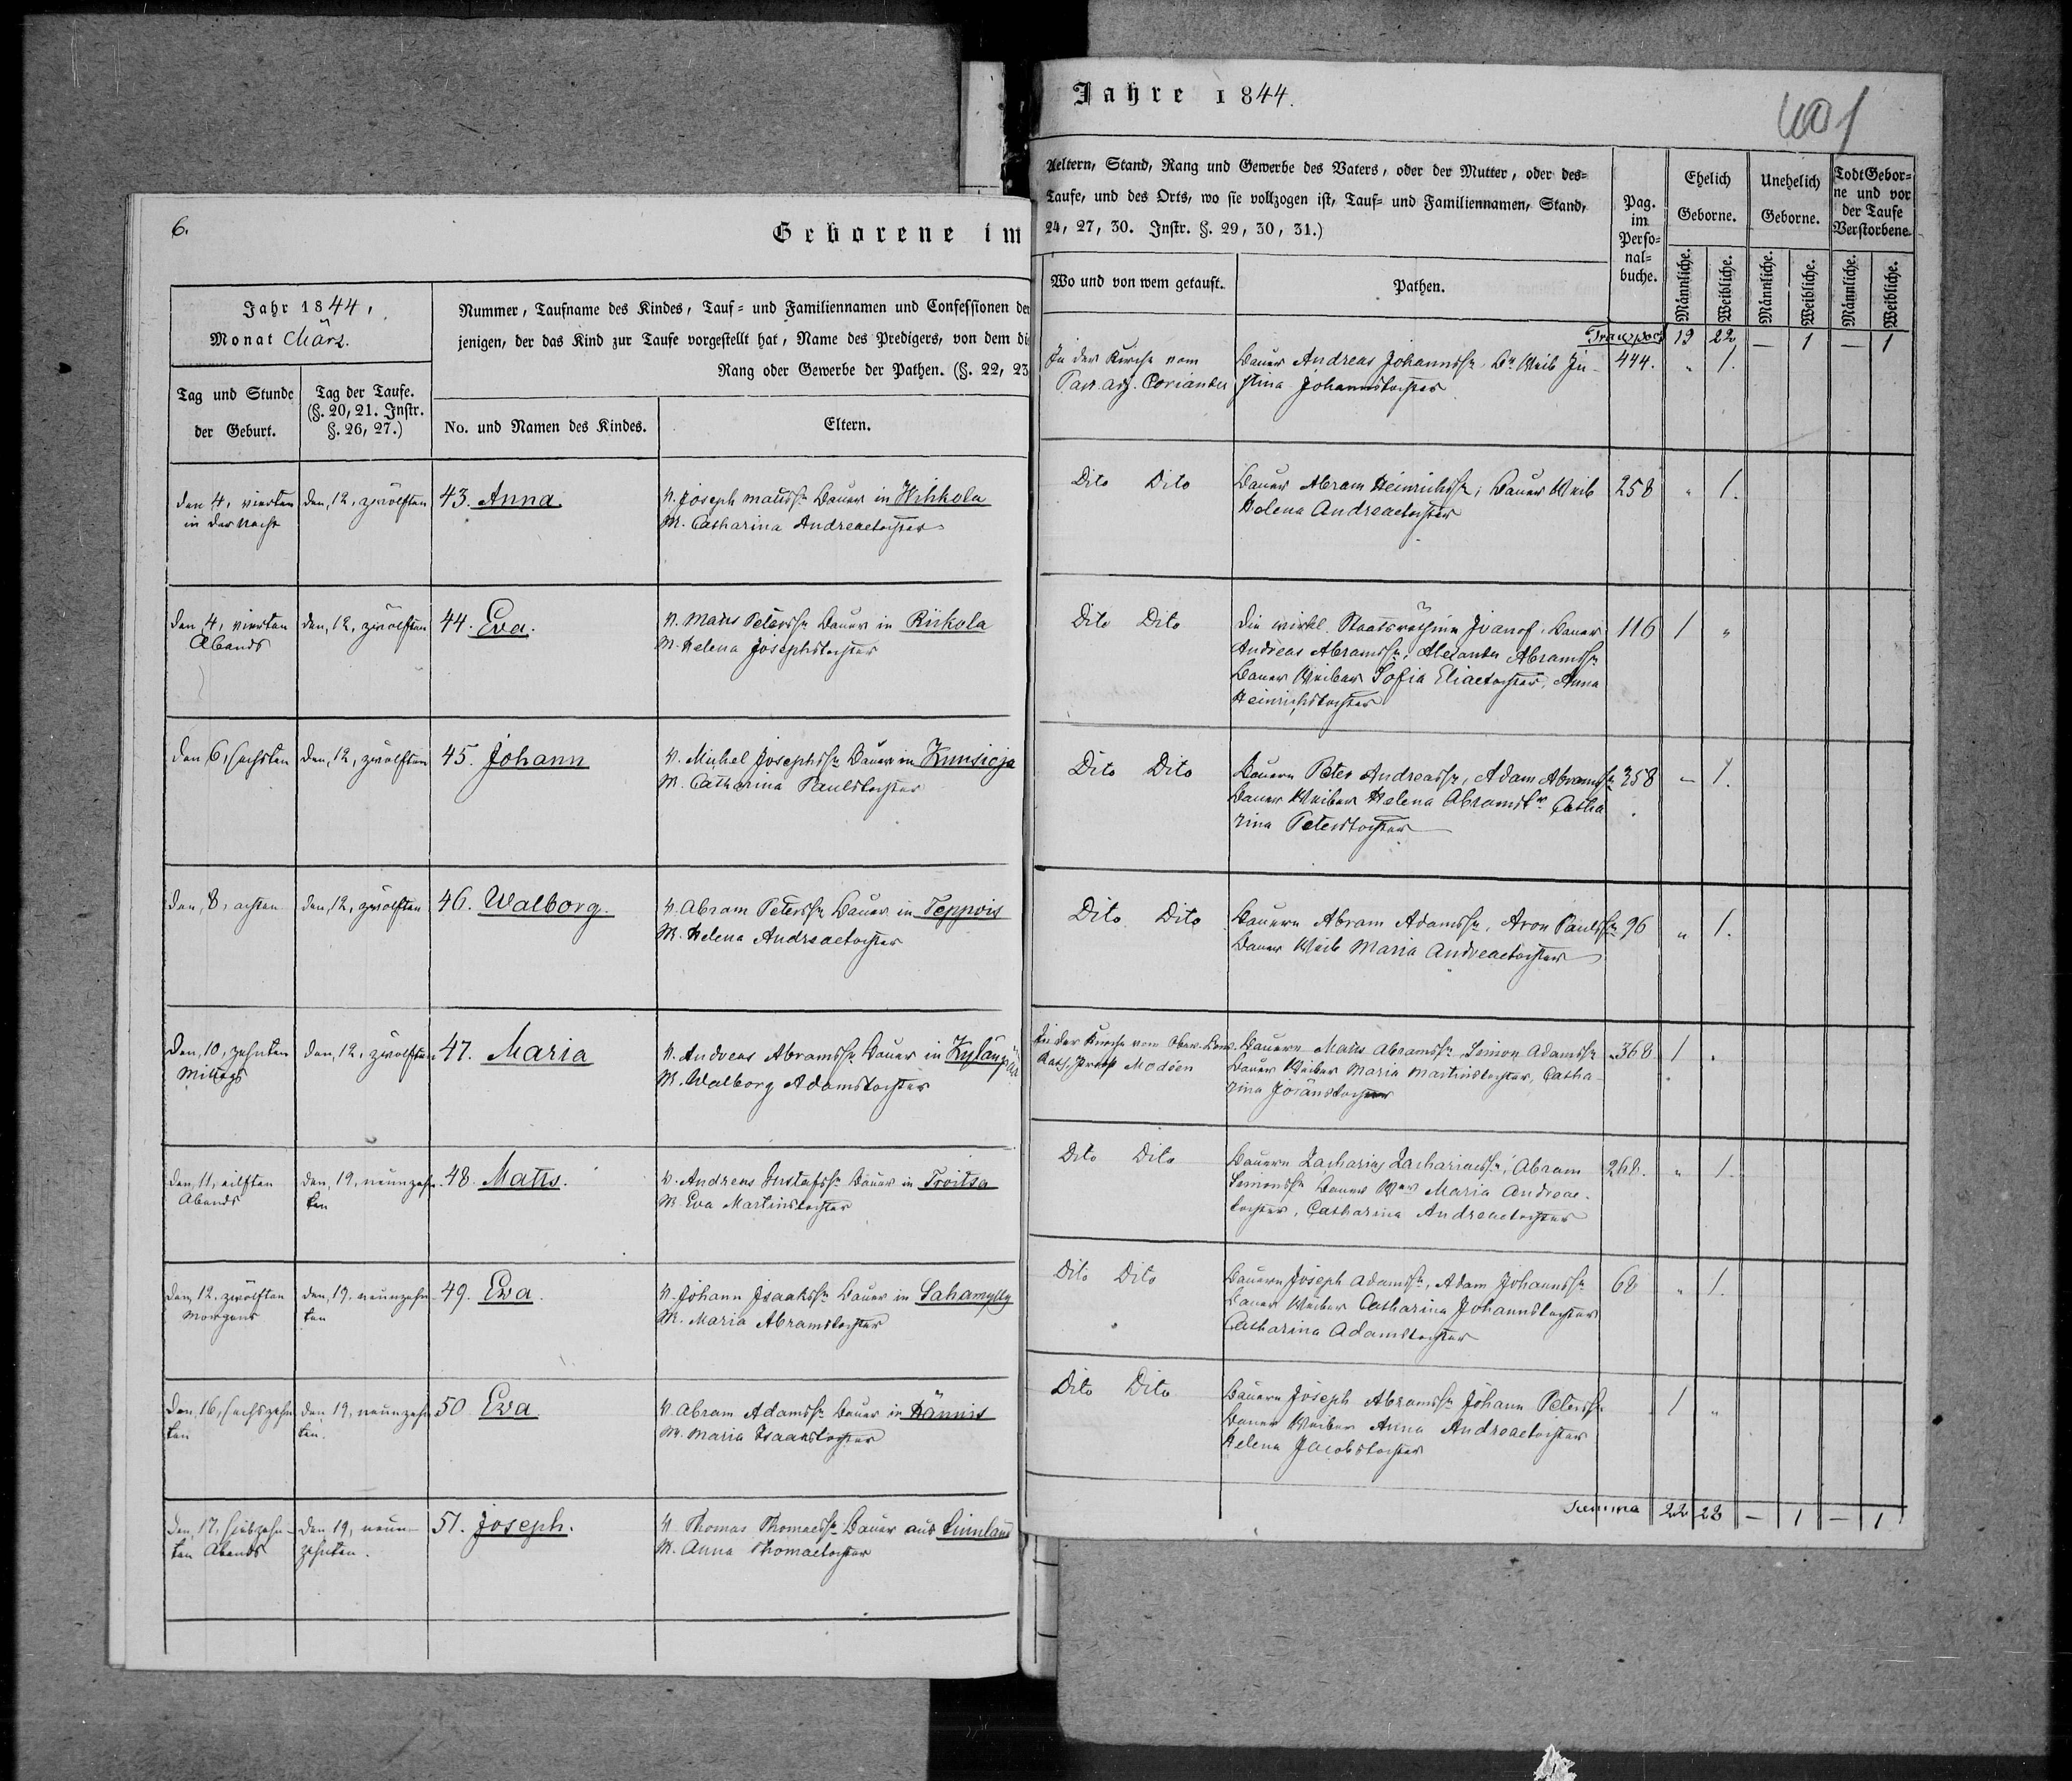 6.
Geborene im
Jahr 1844,
Monat März.
Nummer, Taufname des Kindes, Tauf- und Familiennamen und Confessionen der
jenigen, der das Kind zur Taufe vorgestellt hat, Name des Predigers, von dem di
Rang oder Gewerbe der Pathen. (§. 22, 23
Tag und Stunde
der Geburt.
Tag der Taufe.
(§. 20, 21. Instr.
§. 26, 27.)
No. und Namen des Kindes.
Eltern.
den 4, vierten
in der Nacht
den, 12, zwölften
43. Anna.
V. Joseph Matsss. Bauer in
M. Catharina Andreaetochter
den, 4, vierten
Abends
den, 12, zwölften
44. Eva.
V. Matts Peterssn Bauer in Riikola
M. Helena Josephstochter
den 6, sechsten
den, 12, zwölften
45. Johann
V. Michel Josephssn Bauer in
M. Catharina Paulstochter
den, 8, achten
den, 12, zwölften
46. Walborg.
V. Abram Peterssn Bauer in Teppois
M. Helena Andreaetochter
den, 10, zehnten
Mittags
den, 12, zwölften
47. Maria
V. Andreas Abramssn Bauer in
M. Walborg Adamstochter
den, 11, eilften
Abends
den, 19, neunzehn-
ten
48. Matts.
V. Andreas Gustafssn Bauer in Troitsa
M. Eva Martinstochter
den, 12, zwölften
Morgens
den, 19, neunzehn-
ten
49. Eva.
V. Johann Isaakssn Bauer in Sahamylly
M. Maria Abramstochter
den, 16, sechszehn
ten
den 19, neunzehn
ten.
50 Eva
V. Abram Adamssn Bauer in Hännis
M. Maria Isaakstochter
den, 17, siebzehn-
ten Abends
den 19, neun-
zehnten.
51. Joseph.
V. Thomas Thomaessn Bauer aus Finnland
M. Anna Thomaetochter
Jahre 1844.
401
Aeltern, Stand, Rang und Gewerbe des Vaters, oder der Mutter, oder des-
Taufe, und des Orts, wo sie vollzogen ist, Tauf- und Familiennamen, Stand,
24, 27, 30. Instr. §. 29, 30, 31.)
Wo und von wem getauft.
Pathen.
Pag.
im
Perso-
nal-
buche.
Ehelich
Geborne.
Unehelich
Geborne.
Todt Gebor-
ne und vor
der Taufe
Verstorbene.
Männliche.
Weibliche.
Männliche.
Weibliche.
Männliche.
Weibliche.
Transport 19 22 — 1 — 1
In der Kirche vom
Past. adj. Coriander
Bauer Andreas Johannssn Br Weib Ju-
stina Johannstochter
444. " 1.
Dito Dito
Bauer Abram Heinrichssn, Bauer Weib
Helena Andreaetochter
258 " 1.
Dito Dito
Die wirkl. Staatsräthinn Ivanof, Bauer
Andreas Abramssn, Alexander Abramssn
Bauer Weiber Sofia Eliaetochter, Anna
Heinrichstochter
116 1 "
Dito Dito
Bauern Peter Andreassn, Adam Abramssn
Bauer Weiber Helena Abramstr Catha
rina Peterstochter
358 — 1.
Dito Dito
Bauern Abram Adamssn, Aron Paulssn
Bauer Weib Maria Andreaetochter
96 " 1.
In der Kirche vom Ober-Cons.
Rath, Probst Modéen
Bauern Matts Abramssn, Simon Adamssn
Bauer Weiber Maria Martinstochter, Catha-
rina Joranstochter
368 1 "
Dito Dito
Bauern Zacharias Zachariaessn, Abram
Simonssn Bauer Wer Maria Andreae-
tochter, Catharina Andreaetochter
268. " 1.
Dito Dito
Bauern Joseph Adamssn, Adam Johannssn
Bauer Weiber Catharina Johannstochter
Catharina Adamstochter
68 " 1.
Dito Dito
Bauern Joseph Abramssn Johann Peterssn
Bauer Weiber Anna Andreaetochter
Helena Jacobstochter
1 "
Summa 22 28 — 1 — 1